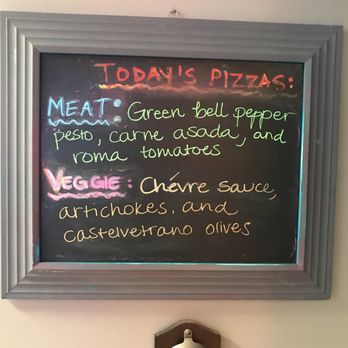 TODAY'S PIZZAS:
MEAT: Green bell pepper
pesto, carne asada, and
roma tomatoes
VEGGIE: Chévre sauce,
artichokes, and
castelvetrano olives